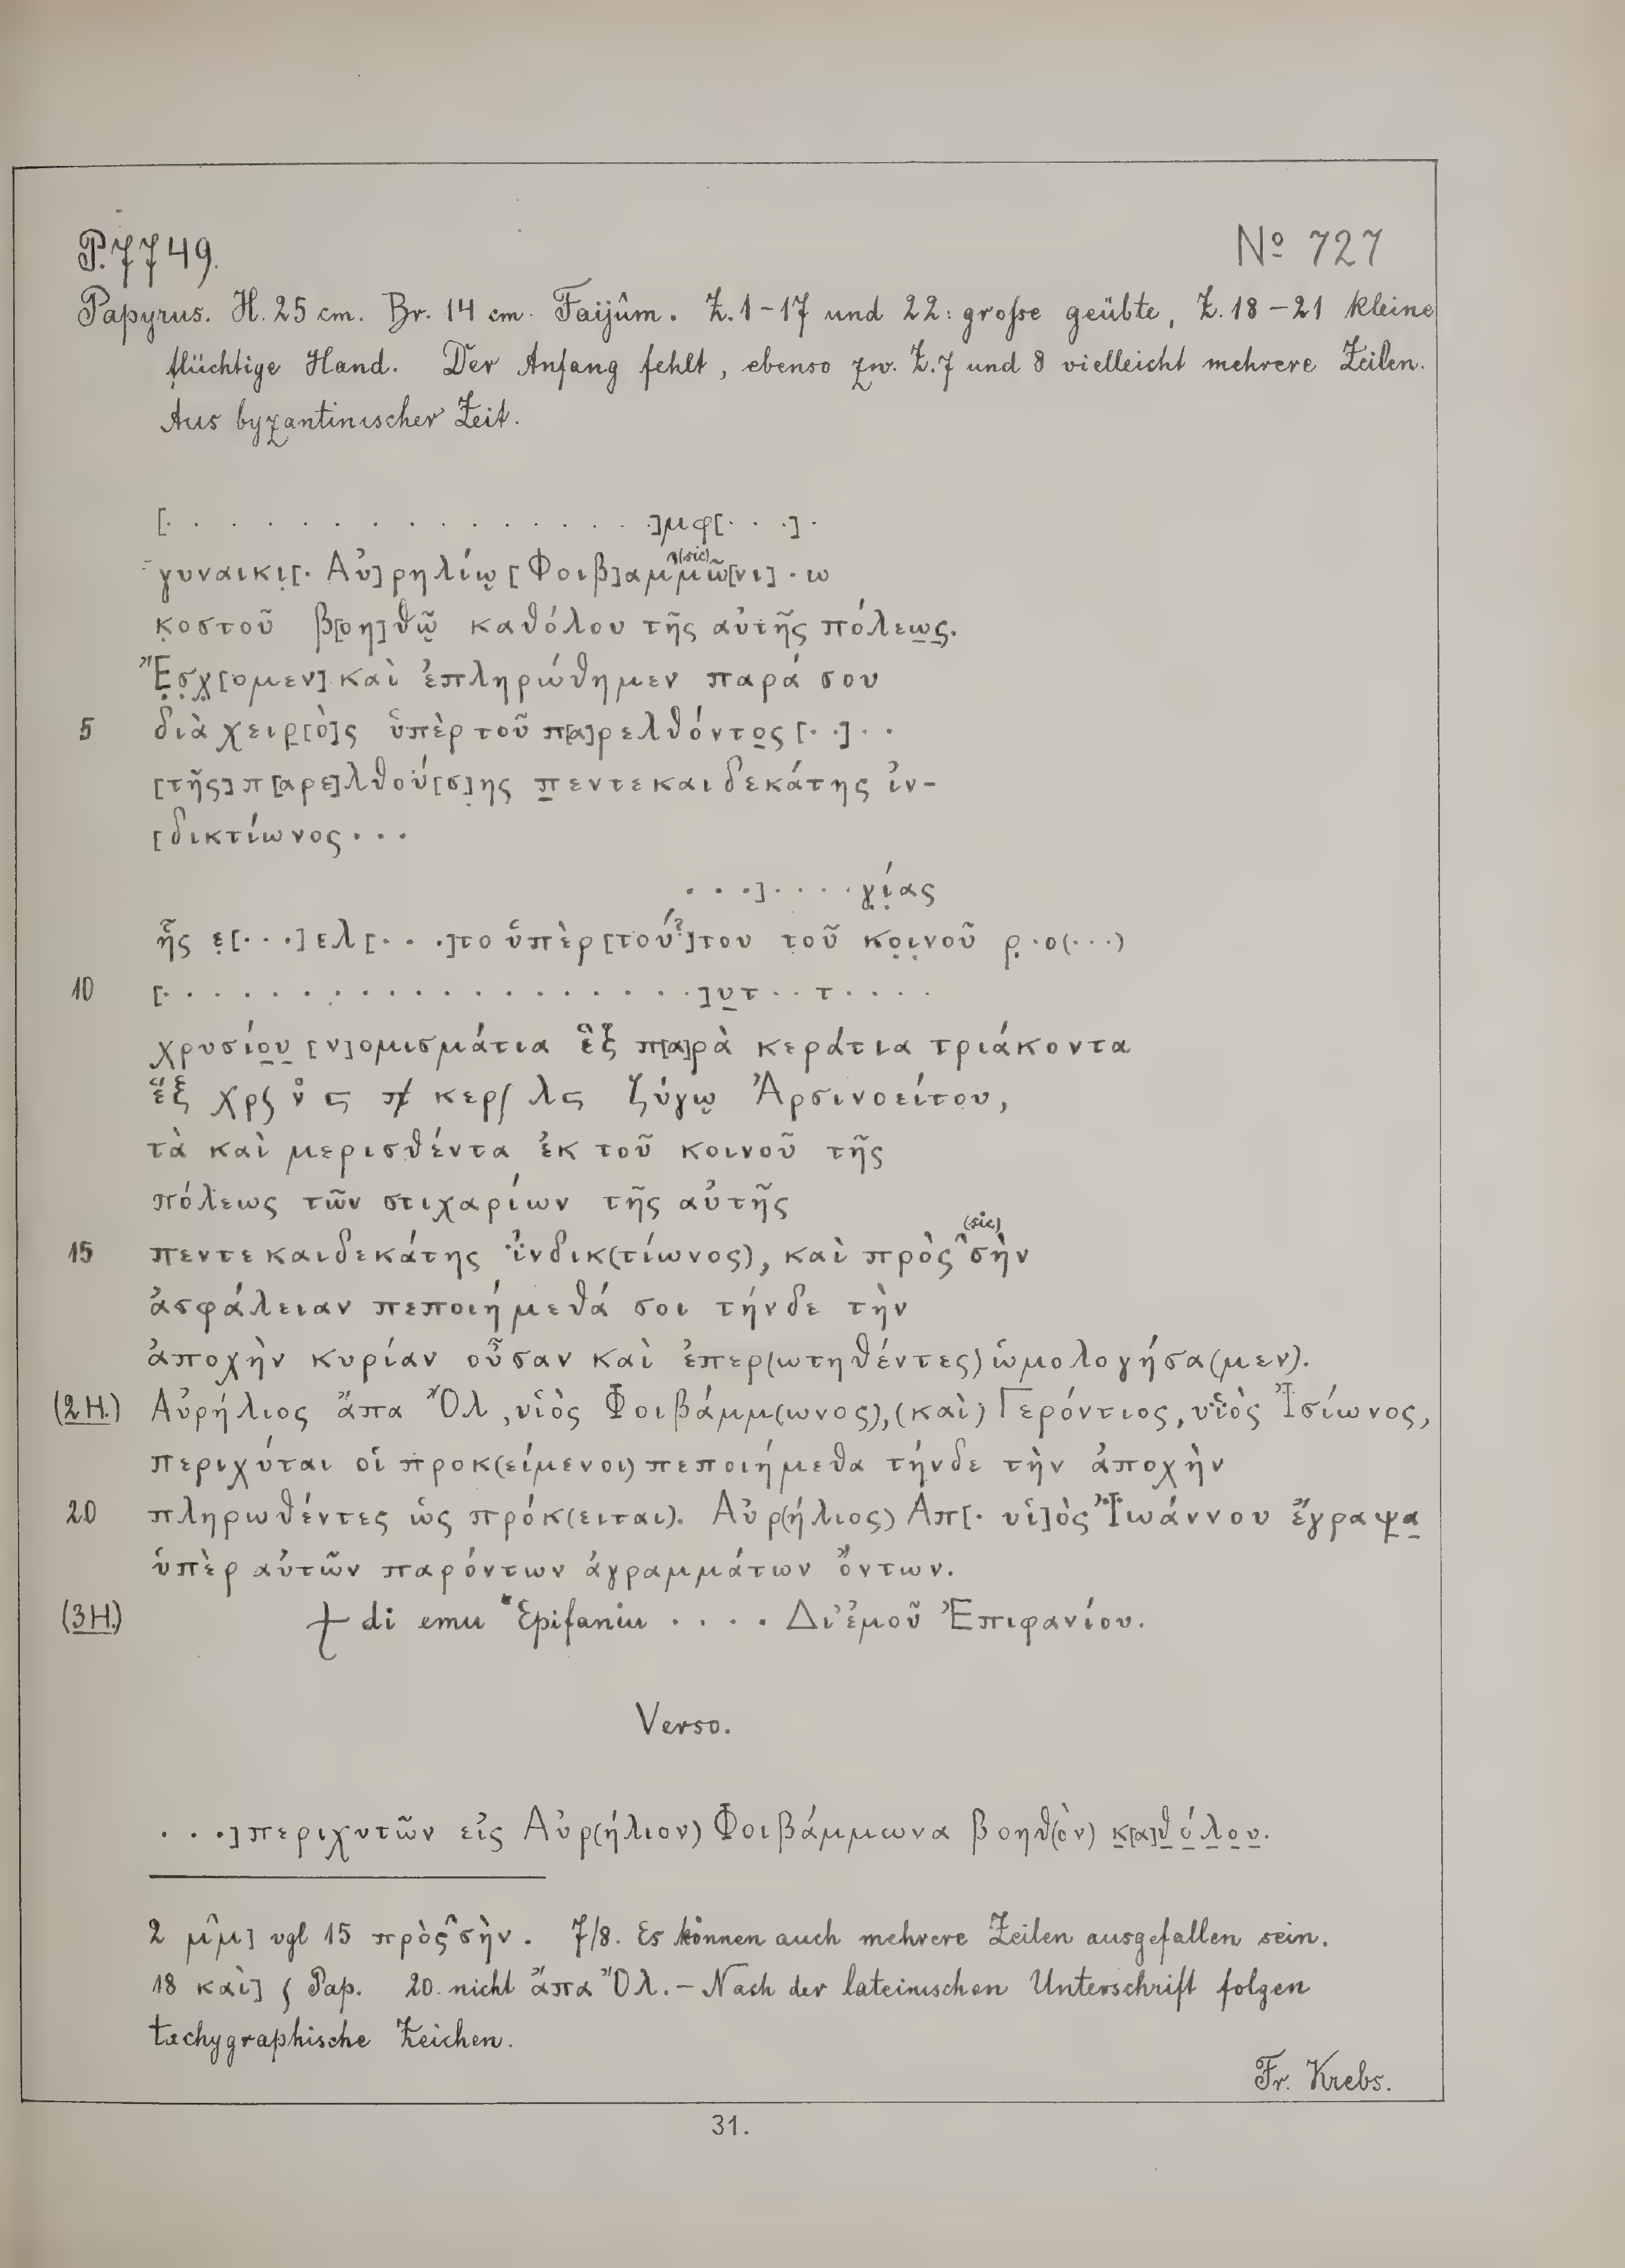 P. 7749.
No 727
Papyrus. H. 25 cm. Br. 14 cm. Faijûm. Z. 1-17 und 22: große geübte, Z. 18-21 kleine
flüchtige Hand. Der Anfang fehlt, ebenso zw. Z. 7 und 8 vielleicht mehrere Zeilen.
Aus byzantinischer Zeit.
[. . . . . . . . . . . . . . . .]μφ[. . .] .
γυναικι[. Αὐ]ρηλίῳ [Φοιβ]αμμῶ[νι] . ω
(sic)
κοστοῦ β[οη]θῷ καθόλου τῆς αὐτῆς πόλεως.
Ἔσχ[ομεν] καὶ ἐπληρώθημεν παρά σου
5 διὰ χειρ[ὸ]ς ὑπὲρ τοῦ π[α]ρελθόντος [. .] . .
[τῆς] π[αρε]λθού[σ]ης πεντεκαιδεκάτης ἰν-
[δικτίωνος . . .
. . .] . . . . γίας
ἧς ε[. . .] ελ[. . .]το ὑπὲρ [τού?]του τοῦ κοινοῦ ρ . ο(. . .)
10 [. . . . . . . . . . . . . . . . . . .]υτ . . τ . . . .
χρυσίου [ν]ομισμάτια ἓξ π[α]ρὰ κεράτια τριάκοντα
ἓξ χρ∫ ν̊ ϛ π̸ κερ∫ λϛ ζύγῳ Ἀρσινοείτου,
τὰ καὶ μερισθέντα ἐκ τοῦ κοινοῦ τῆς
πόλεως τῶν στιχαρίων τῆς αὐτῆς
15 πεντεκαιδεκάτης ἰνδικ(τίωνος), καὶ πρὸς ̂ σὴν
(sic)
ἀσφάλειαν πεποιήμεθά σοι τήνδε τὴν
ἀποχὴν κυρίαν οὖσαν καὶ ἐπερ(ωτηθέντες) ὡμολογήσα(μεν).
(2H.) Αὐρήλιος ἄπα Ὂλ, υἱὸς Φοιβάμμ(ωνος), (καὶ) Γερόντιος, υἱὸς Ἰσίωνος,
περιχύται οἱ προκ(είμενοι) πεποιήμεθα τήνδε τὴν ἀποχὴν
20 πληρωθέντες ὡς πρόκ(ειται). Αὐρ(ήλιος) Απ[. υἱ]ὸς Ἰωάννου ἔγραψα
ὑπὲρ αὐτῶν παρόντων ἀγραμμάτων ὄντων.
(3H.) † di emu Epifaniu . . . . Δι’ ἐμοῦ Ἐπιφανίου.
Verso.
. . .] περιχυτῶν εἰς Αὐρ(ήλιον) Φοιβάμμωνα βοηθ(ὸν) κ[α]θόλου.
2 μ̂μ] vgl 15 πρὸς ̂ σὴν. 7/8. Es können auch mehrere Zeilen ausgefallen sein.
18 καὶ] ∫ Pap. 20. nicht ἄπα Ὂλ. – Nach der lateinischen Unterschrift folgen
tachygraphische Zeichen.
Fr. Krebs.
31.